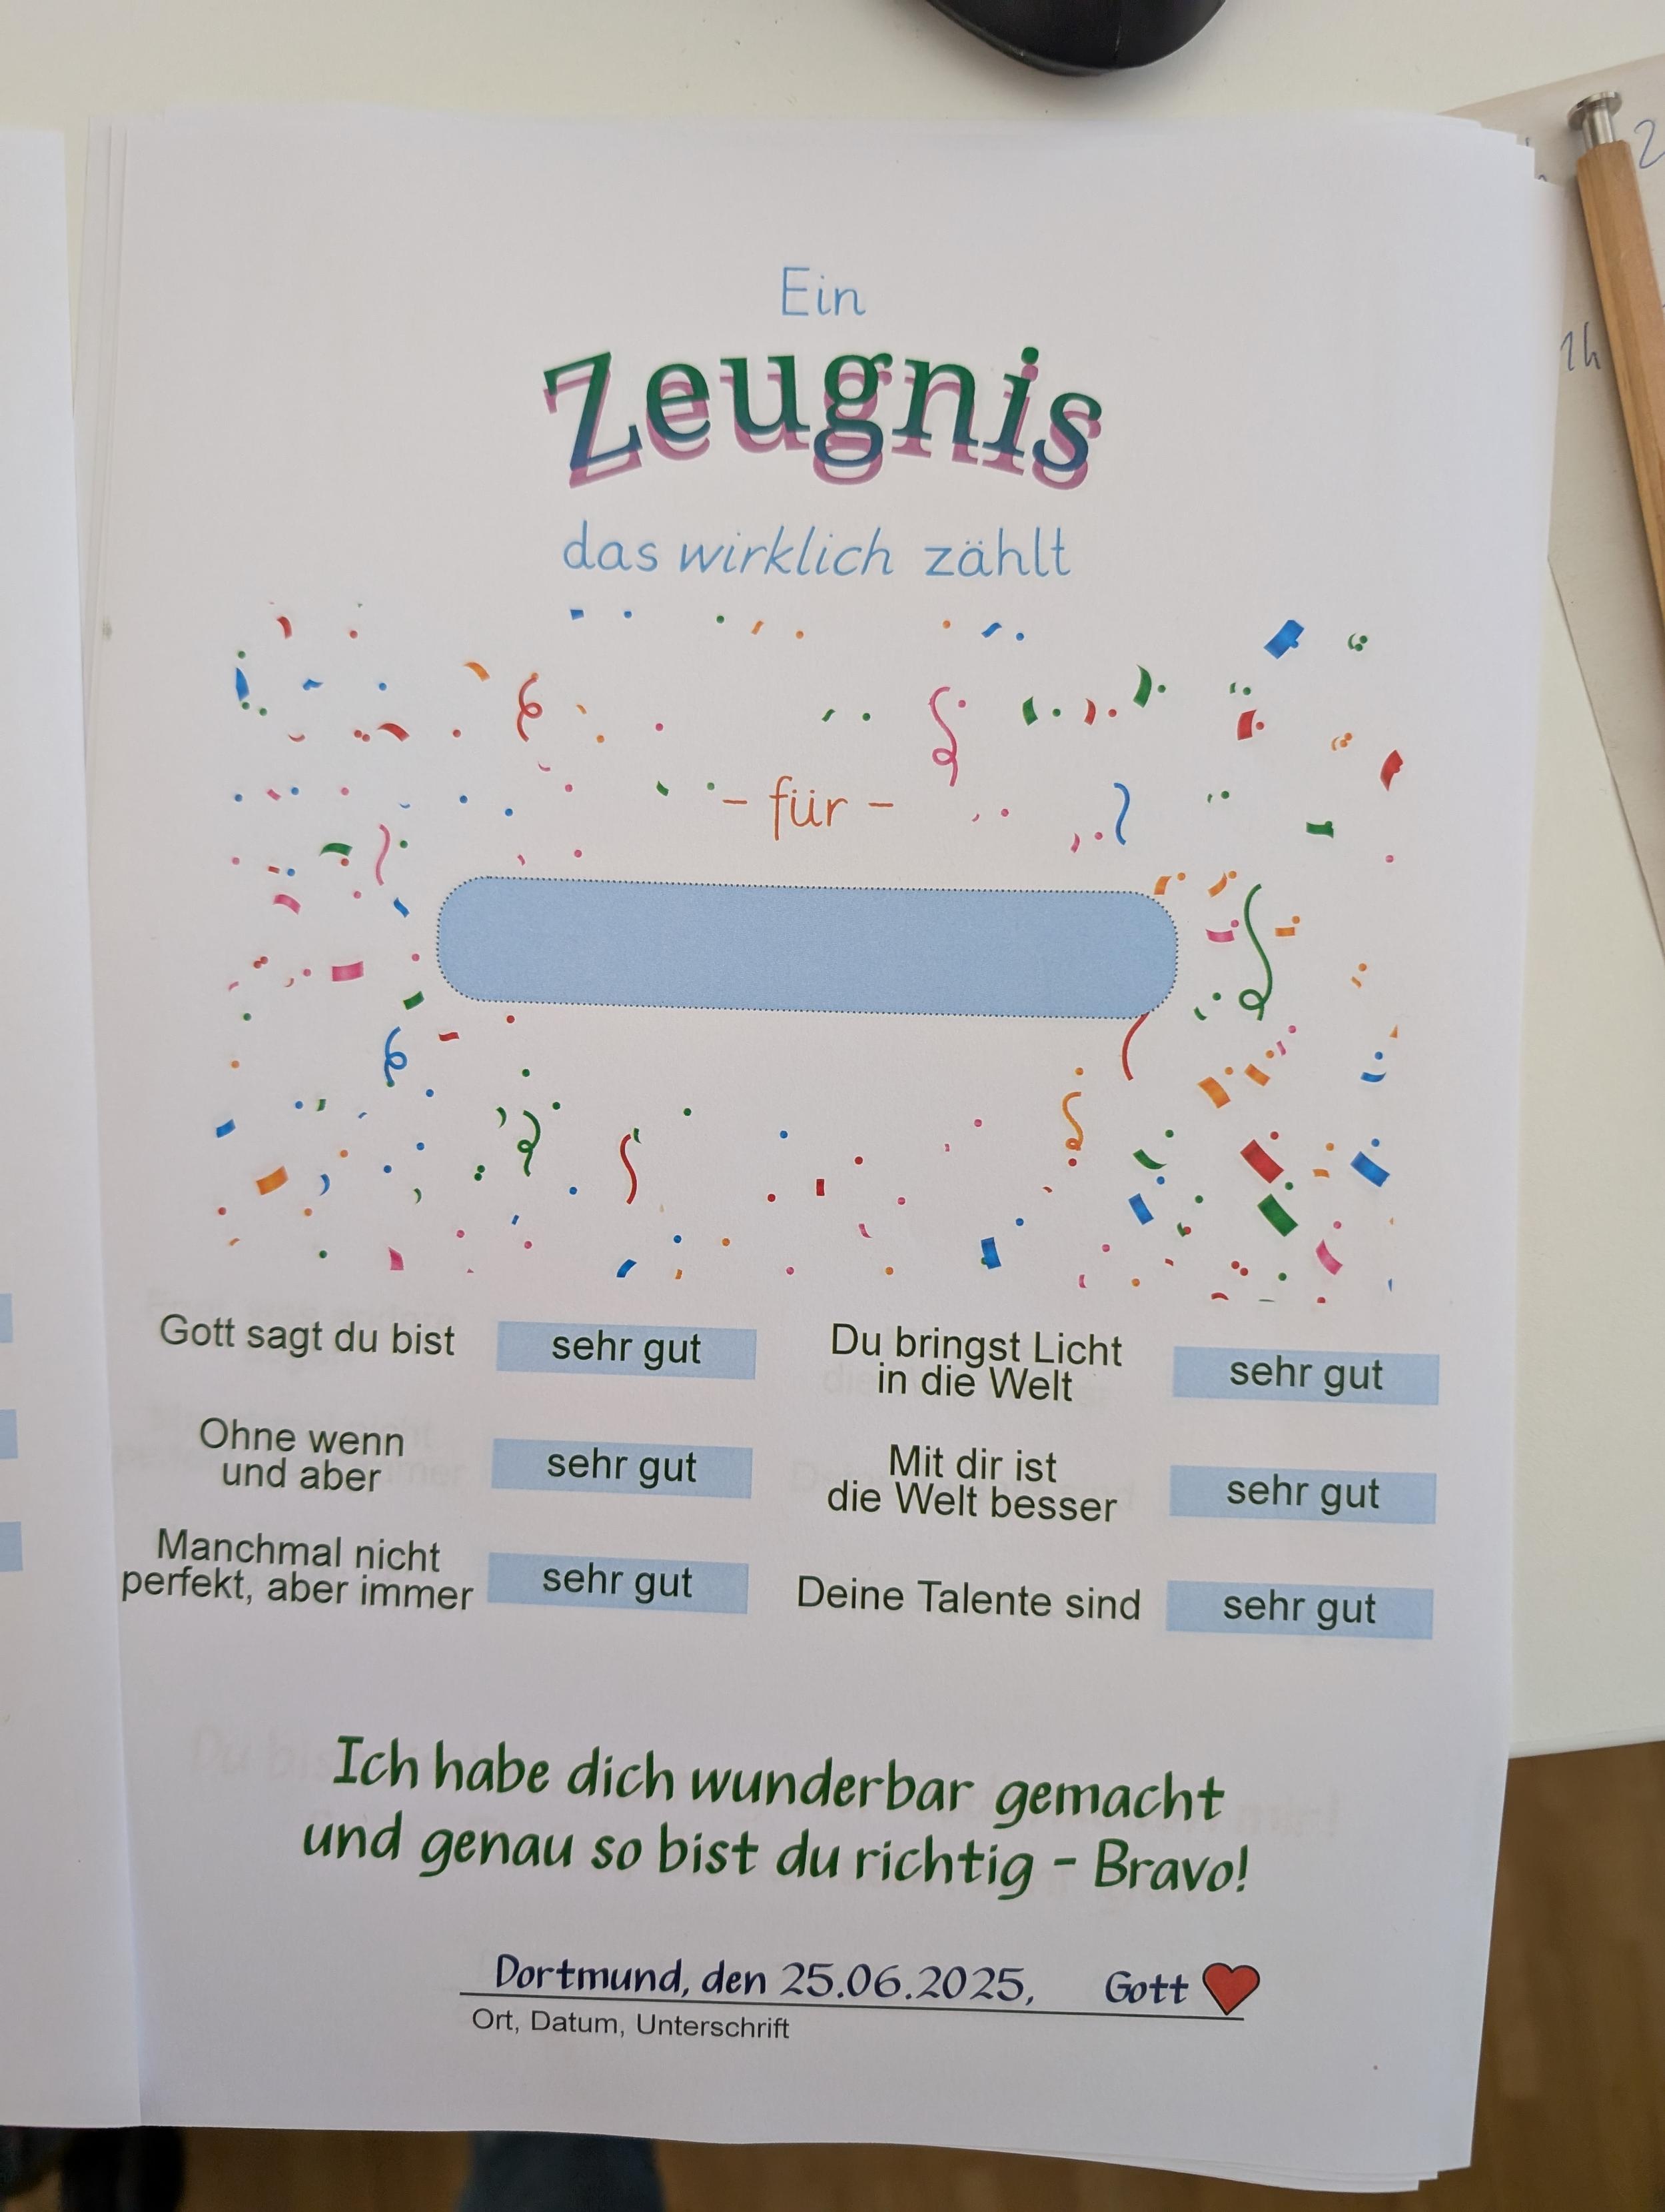 Ein
Zeugnis
das wirklich zählt
- für -
Gott sagt du bist
sehr gut
Du bringst Licht
in die Welt
sehr gut
Ohne wenn
und aber
sehr gut
Mit dir ist
die Welt besser
sehr gut
Manchmal nicht
perfekt, aber immer
sehr gut
Deine Talente sind
sehr gut
Ich habe dich wunderbar gemacht
und genau so bist du richtig - Bravo!
Dortmund, den 25.06.2025, Gott
Ort, Datum, Unterschrift